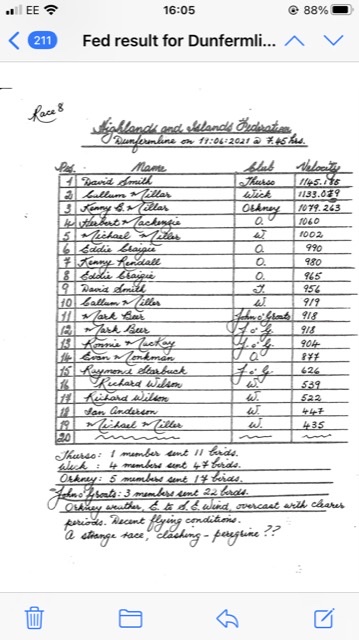 EE 16:05 88%
211 Fed result for Dunfermli...
Race 8
Highlands and Islands Federation
Dunfermline on 11:06:2021 @ 7.45 hrs.
Pos. Name Club Velocity
1 David Smith Thurso 1145.185
2 Cullum Millar Wick 1133.089
3 Kenny & Millar Orkney 1079.263
4 Herbert Mackenzie O. 1060
5 Michael Miller W 1002
6 Eddie Craigie O. 990
7 Kenny Kendall O. 980
8 Eddie Craigie O. 965
9 David Smith T. 956
10 Callum Miller W. 919
11 Mark Beer John o'Groats 918
12 Mark Beer J. o' G. 918
13 Ronnie MacKay J. o' G. 904
14 Evan Monkman O. 877
15 Raymond Starbuck J. o' G. 626
16 Richard Wilson W. 539
17 Richard Wilson W. 522
18 Ian Anderson W. 447
19 Michael Miller W. 435
20
Thurso: 1 member sent 11 birds.
Wick: 4 members sent 47 birds.
Orkney: 5 members sent 17 birds.
John o'Groats: 3 members sent 22 birds.
Orkney weather, E. to S.E. Wind, overcast with clearer
periods. Decent flying conditions.
A strange race, clashing - peregrine ??